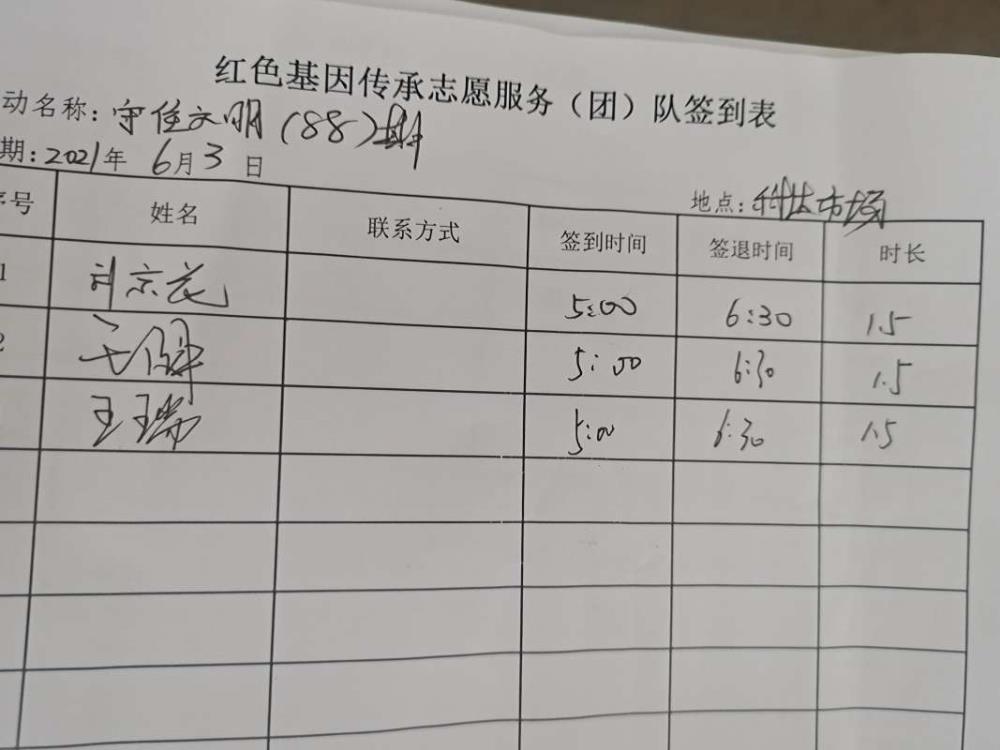 红色基因传承志愿服务（团）队签到表
动名称：守住文明（88）期
期：2021年 6月3日
地点：科达市场
序号 姓名 联系方式 签到时间 签退时间 时长
1 5:00 6:30 1.5
2 5:00 6:30 1.5
王瑞 5:00 6:30 1.5